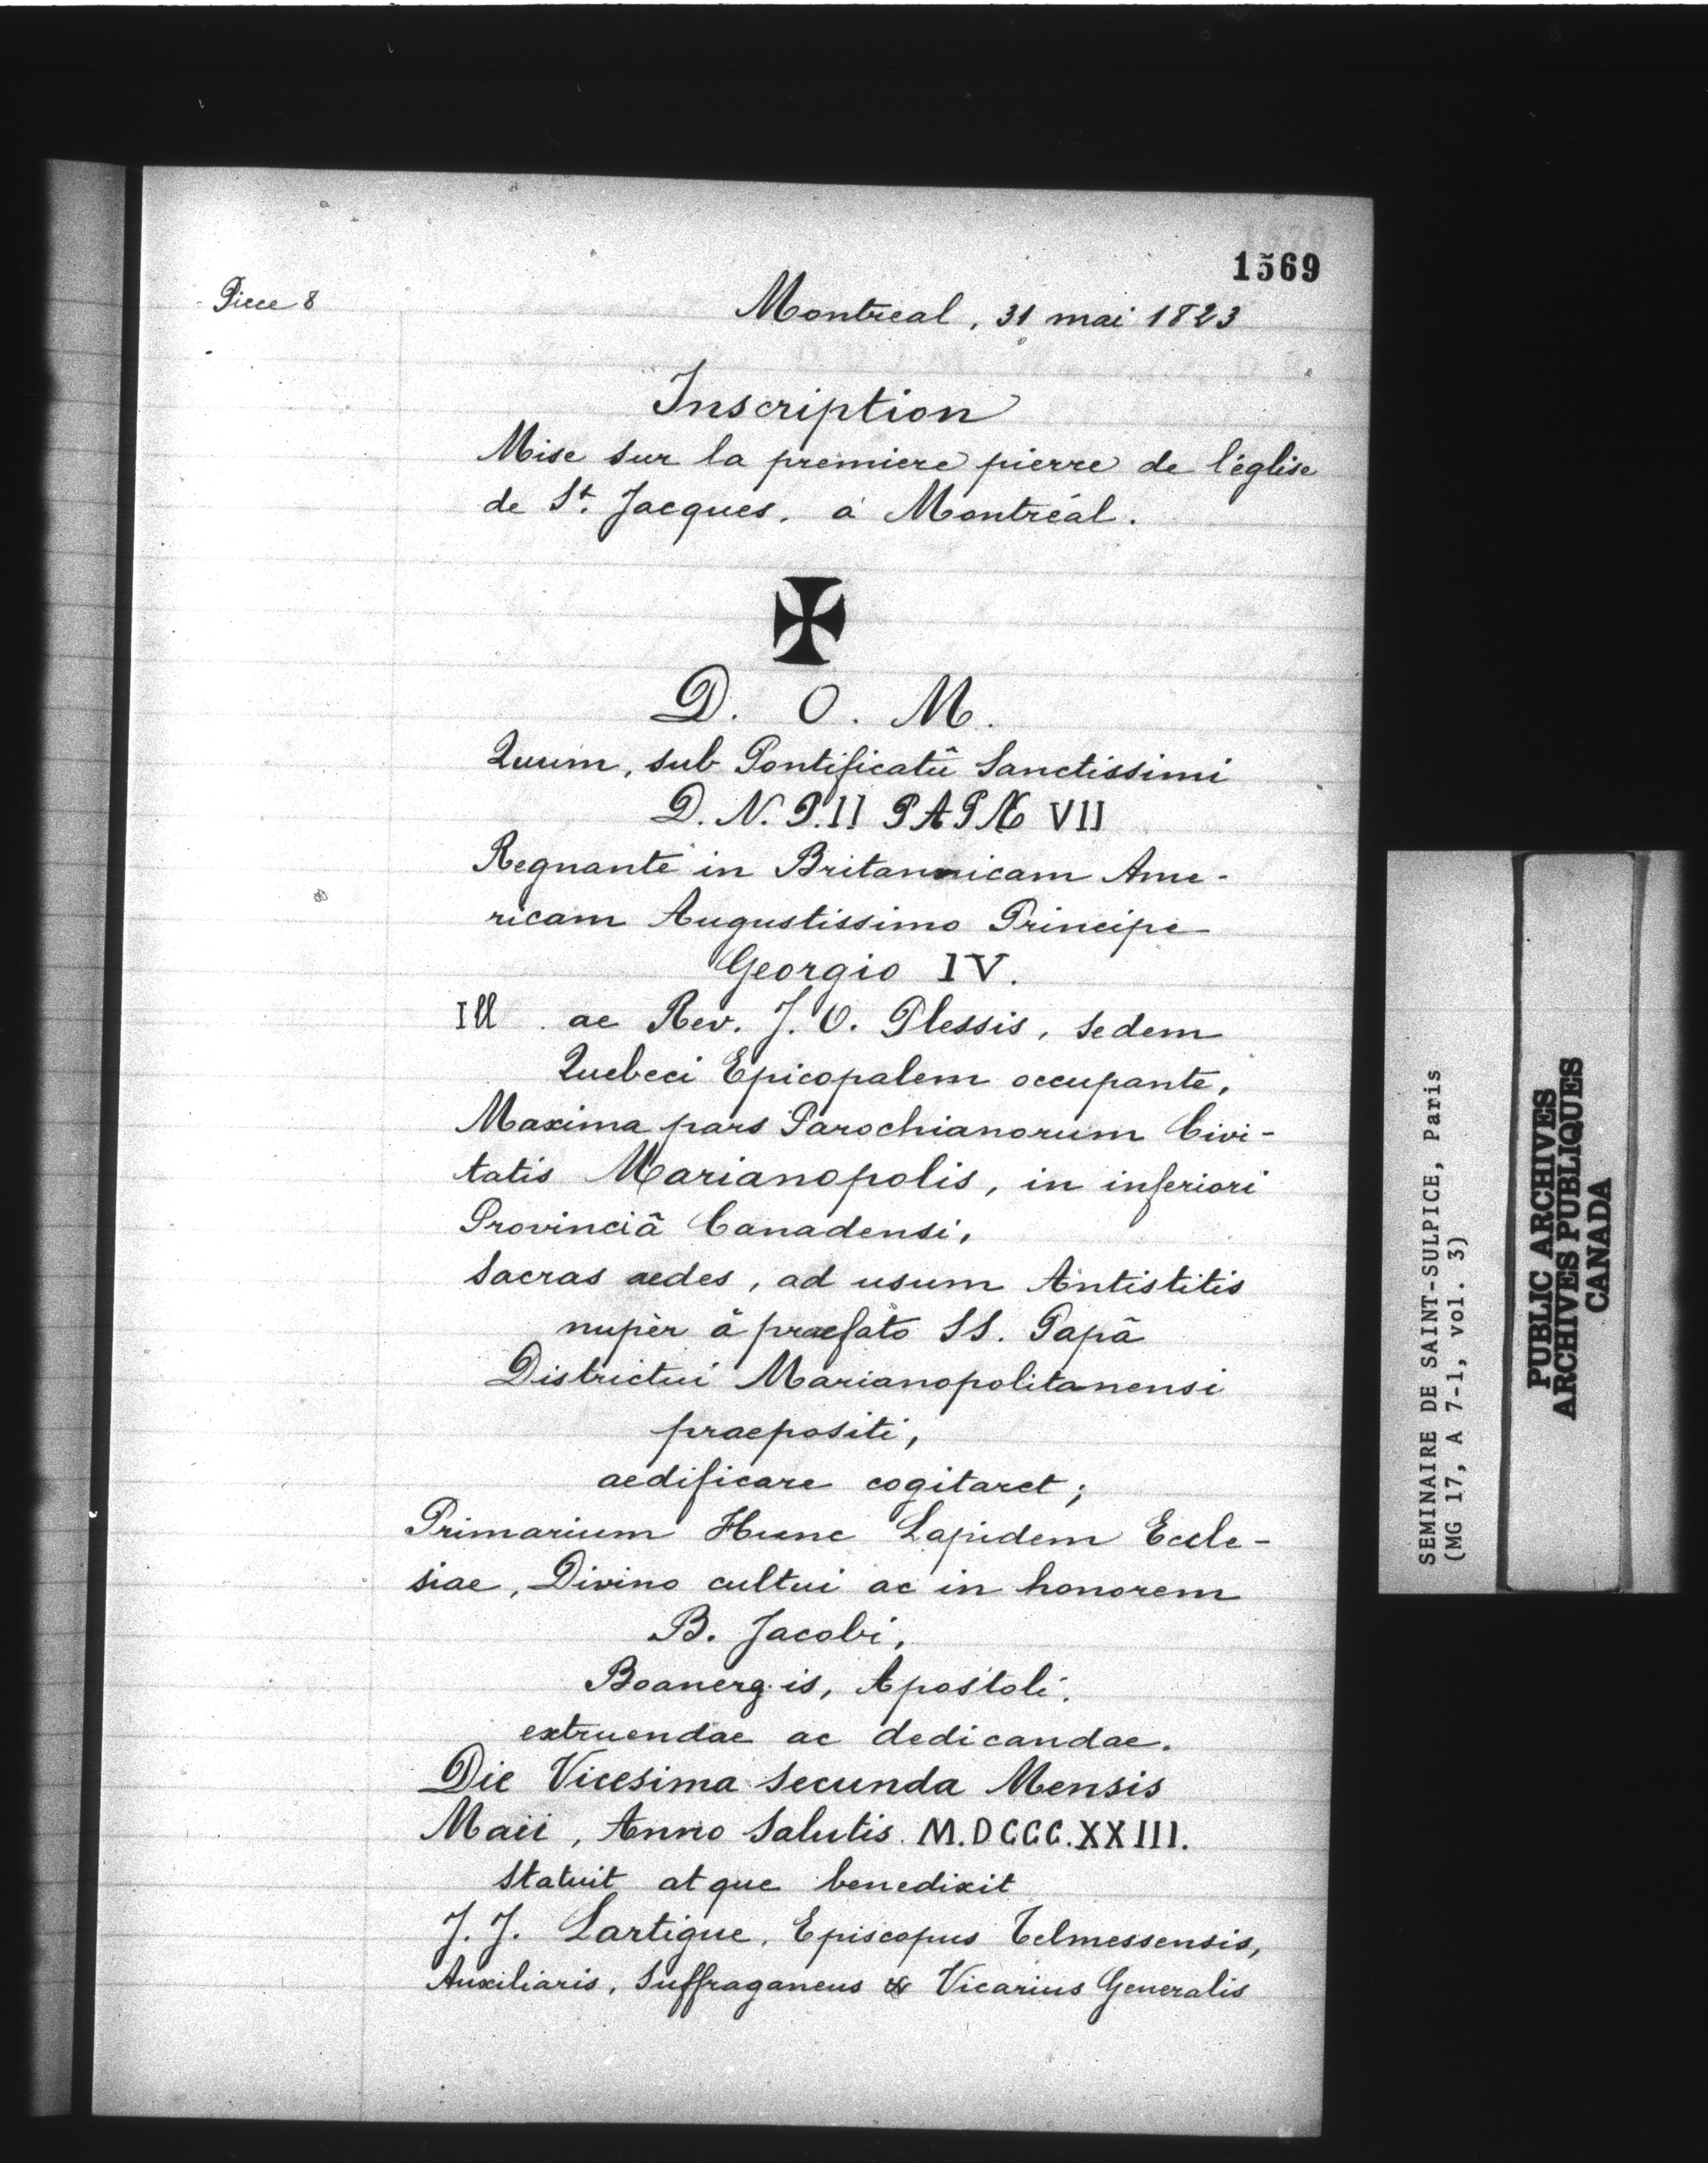 1569
Piece 8
Montreal, 31 mai 1823
Inscription
Mise sur la premiere pierre de l'église
de St. Jacques, à Montréal.
D. O. M.
Quum, sub Pontificatû Sanctissimi
D. N. P.II PAPÆ VII
Regnante in Britannicam Ame-
ricam Augustissimo Principe
Georgio IV.
Ill ac Rev. J. O. Plessis, sedem
Quebeci Epicopalem occupante,
Maxima pars Parochianorum Civi-
tatis Marianopolis, in inferiori
Provinciâ Canadensi,
Sacras aedes, ad usum Antistitis
nupèr â praefato SS. Papâ
Districtui Marianopolitanensi
praepositi,
aedificare cogitaret;
Primarium Hunc Lapidem Eccle-
siae, Divino cultui ac in honorem
B. Jacobi,
Boanergis, Apostoli,
extruendae ac dedicandae.
Die Vicesima secunda Mensis
Maii, Anno Salutis M.DCCC.XXIII.
Statuit atque benedixit
J. J. Lartigue, Episcopus Telmessensis,
Auxiliaris, Suffraganeus & Vicarius Generalis
SEMINAIRE DE SAINT-SULPICE, Paris
(MG 17, A 7-1, vol. 3)
PUBLIC ARCHIVES
ARCHIVES PUBLIQUES
CANADA